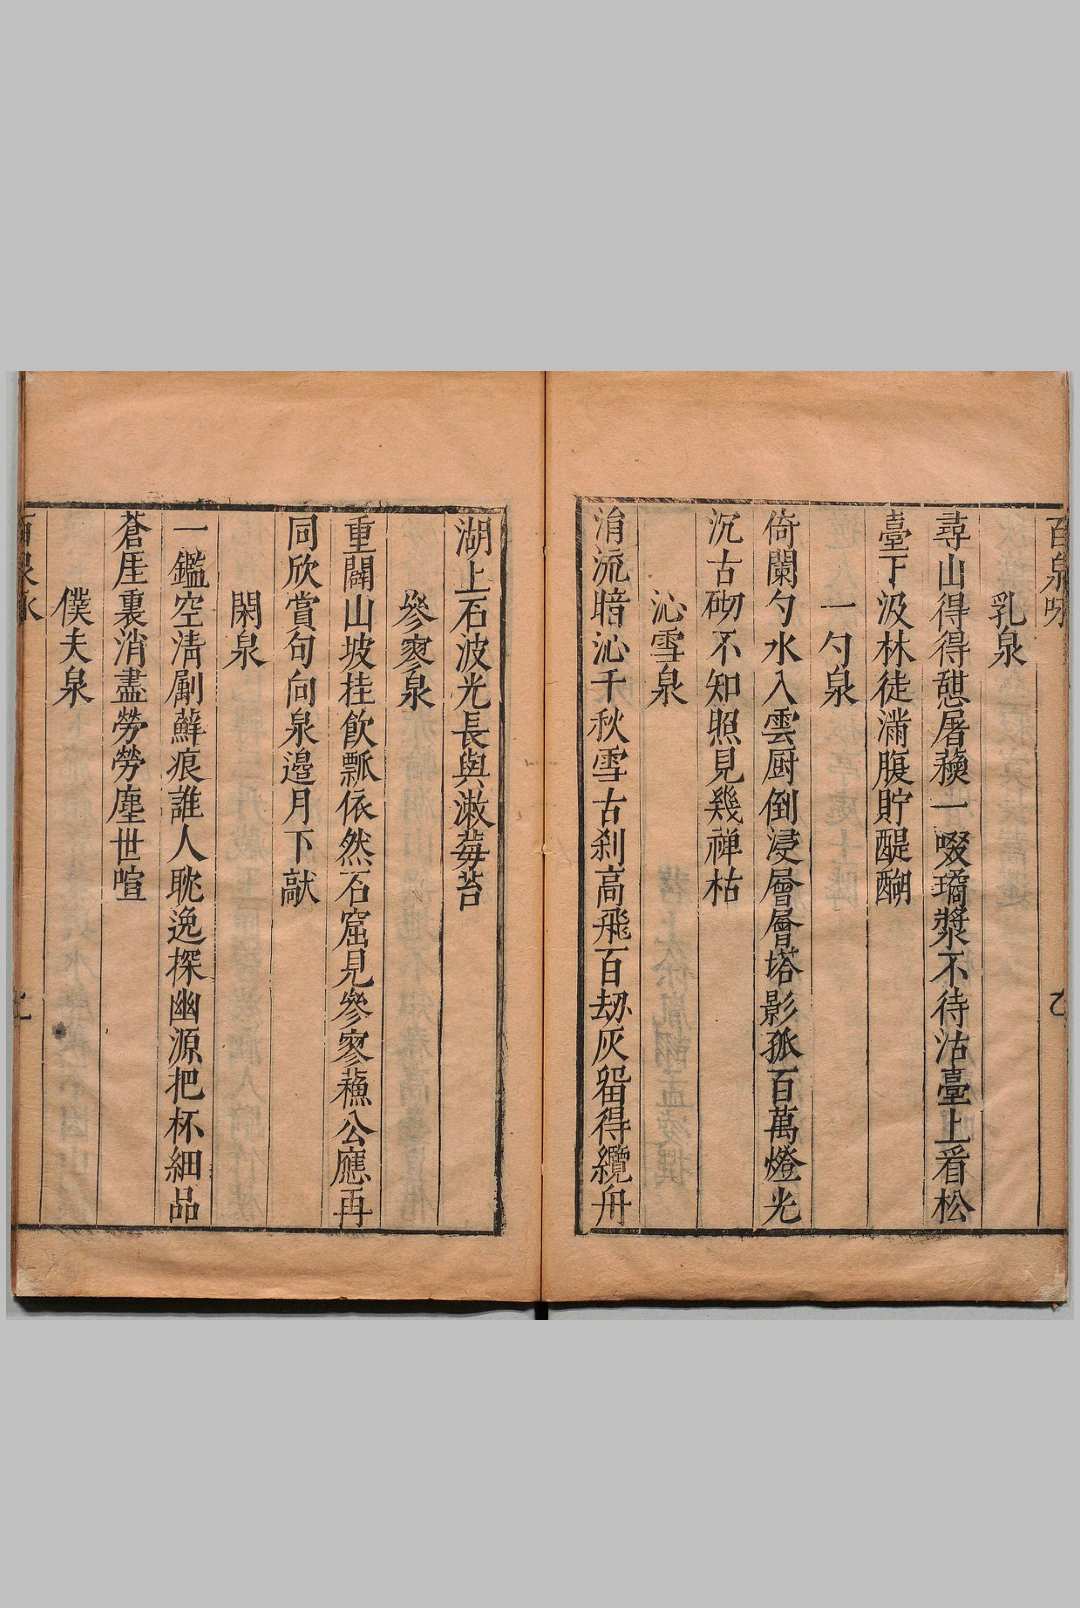 百泉咏
乳泉
尋山得得憇屠蘓一啜璚漿不待沽臺上看松
臺下汲林徒滿腹貯醍醐
一勺泉
倚闌勺水入雲厨倒浸層層塔影孤百萬燈光
沉古砌不知照見幾禅枯
沁雪泉
涓流暗沁千秋雪古刹高飛百刼灰畱得纜舟
湖上石波光長與漱莓苔
參寥泉
重闢山坡挂飲瓢依然石窟見參寥蘓公應再
同欣賞句向泉邉月下敲
閑泉
一鑑空清劚蘚痕誰人眺逸探幽源把杯細品
蒼厓裏消盡勞勞塵世喧
僕夫泉
百泉咏